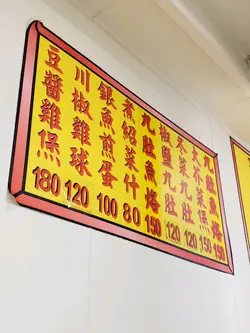 九肚魚烙
150
菜煲
150
冬菜九肚
120
椒鹽九肚
120
九肚魚烙
150
煮紹菜什
80
銀魚煎蛋
100
川椒雞球
120
豆醬雞煲
180